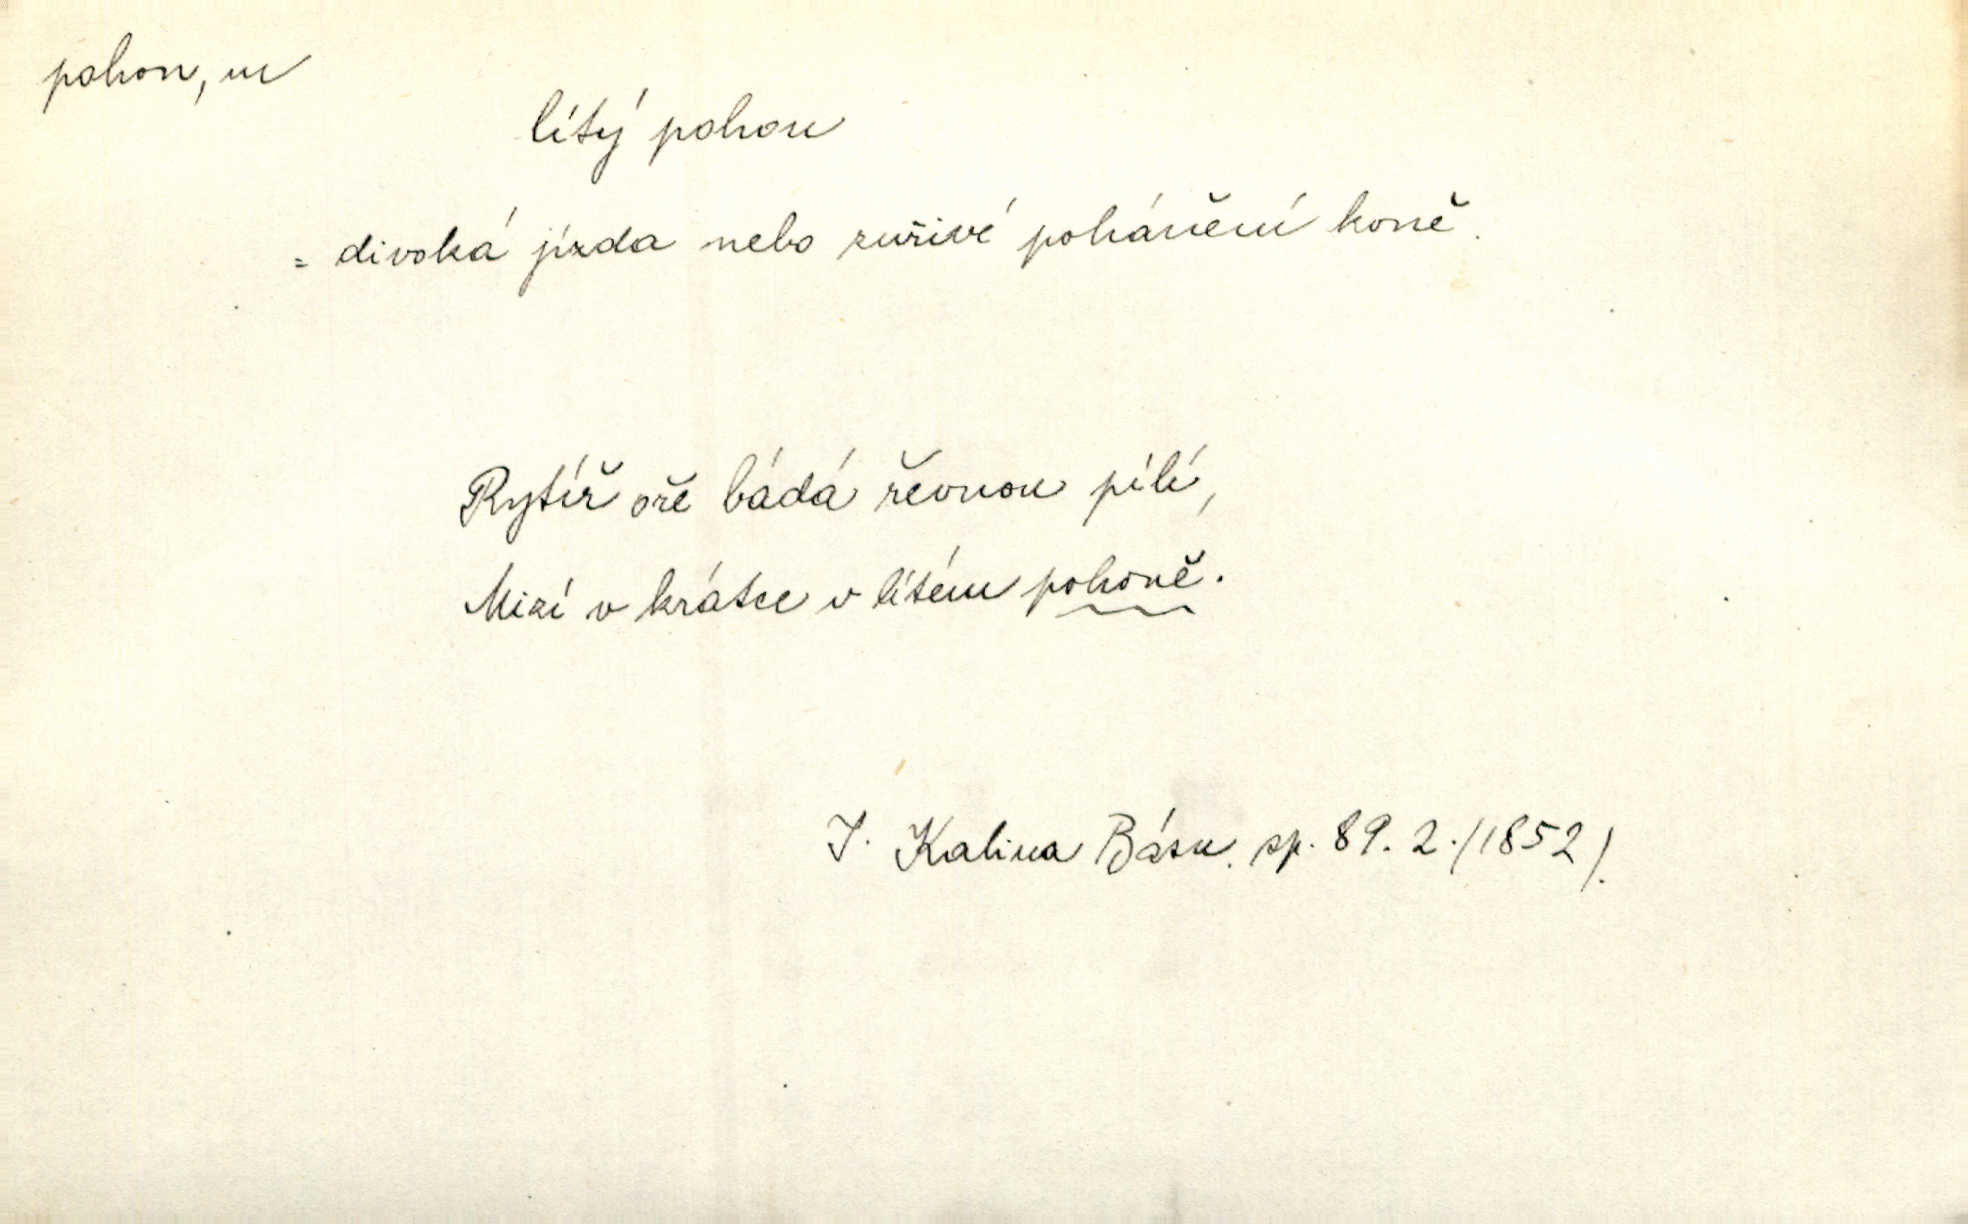 pohon, m
lítý pohon
= divoká jízda nebo zuřivé pohánění koně.
Rytíř oře bádá řevnou pílí,
Mizí v krátce v lítém pohoně.
J. Kalina Básn. sp. 89. 2. (1852).